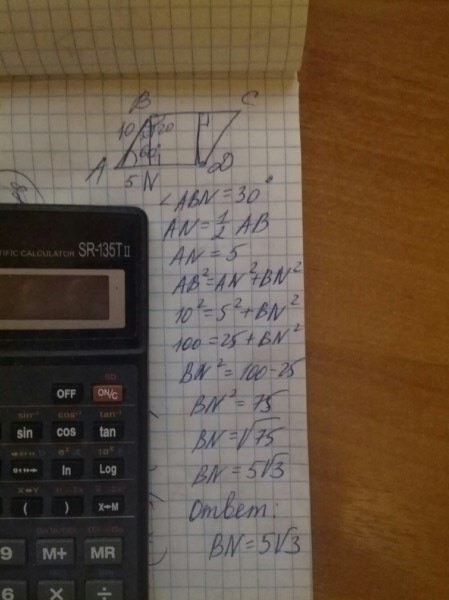 B C
10 30
60°
A D
5 N
∠ABN=30°
AN=1/2 AB
AN=5
AB²=AN²+BN²
10²=5²+BN²
100=25+BN²
BN²=100-25
BN²=75
BN=√75
BN=5√3
Ответ:
BN=5√3
TIFIC CALCULATOR SR-135T II
OFF ON/C
sin⁻¹ cos⁻¹ tan⁻¹
sin cos tan
ln Log
X↔Y
( ) X→M
9 M+ MR
6 × ÷